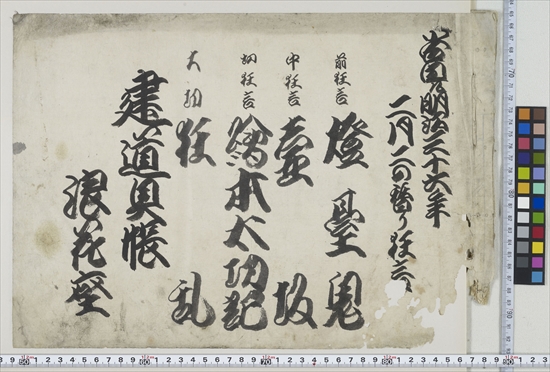 明治三十六年
二月二の替り狂言
前狂言 燈臺鬼
中狂言 壷坂
切狂言 繪本太功記
大切 狂乱
建道具帳
浪花座